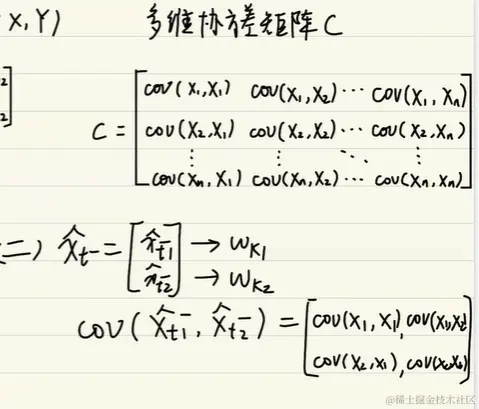 X, Y) 多维协方差矩阵 C
C = [cov(x₁,x₁) cov(x₁,x₂) ⋯ cov(x₁,xₙ)
cov(x₂,x₁) cov(x₂,x₂) ⋯ cov(x₂,xₙ)
⋮ ⋮ ⋱ ⋮
cov(xₙ,x₁) cov(xₙ,x₂) ⋯ cov(xₙ,xₙ)]
二) x̂ₜ⁻ = [x̂ₜ₁⁻ → wₖ₁
x̂ₜ₂⁻] → wₖ₂
cov(x̂ₜ₁⁻, x̂ₜ₂⁻) = [cov(x₁,x₁), cov(x₁,x₂)
cov(x₂,x₁), cov(x₂,x₂)]
@稀土掘金技术社区